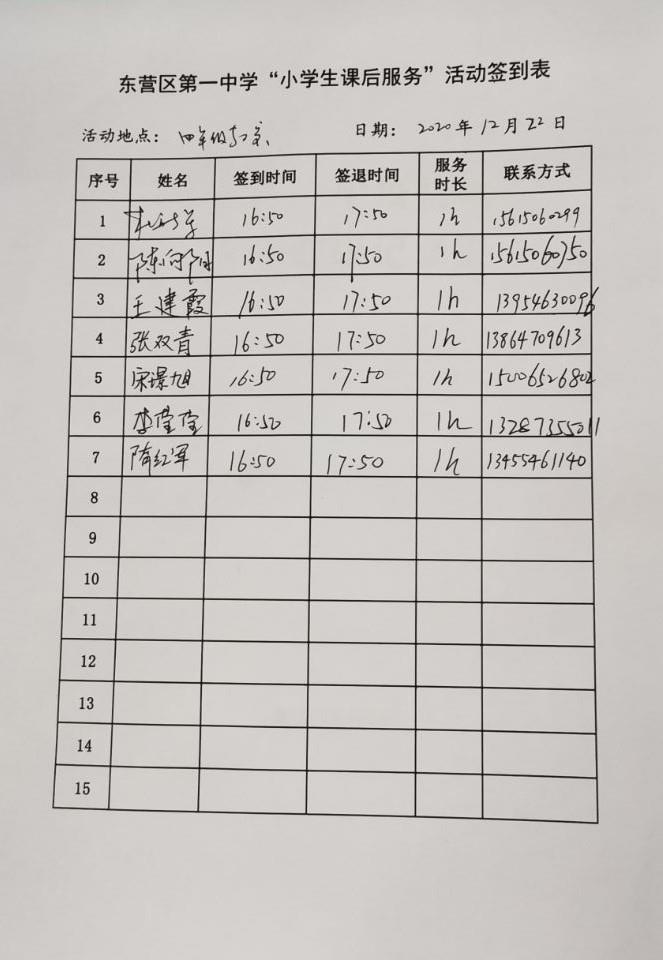 东营区第一中学“小学生课后服务”活动签到表
活动地点：四年级 日期：2020年12月22日
序号 姓名 签到时间 签退时间 服务时长 联系方式
1 16:50 17:50 1h 15615060299
2 陈向阳 16:50 17:50 1h 15615060750
3 王建霞 16:50 17:50 1h 13954630096
4 张双青 16:50 17:50 1h 13864709613
5 宋璟旭 16:50 17:50 1h 15006526802
6 李莹莹 16:50 17:50 1h 13287355011
7 隋红军 16:50 17:50 1h 13455461140
8
9
10
11
12
13
14
15